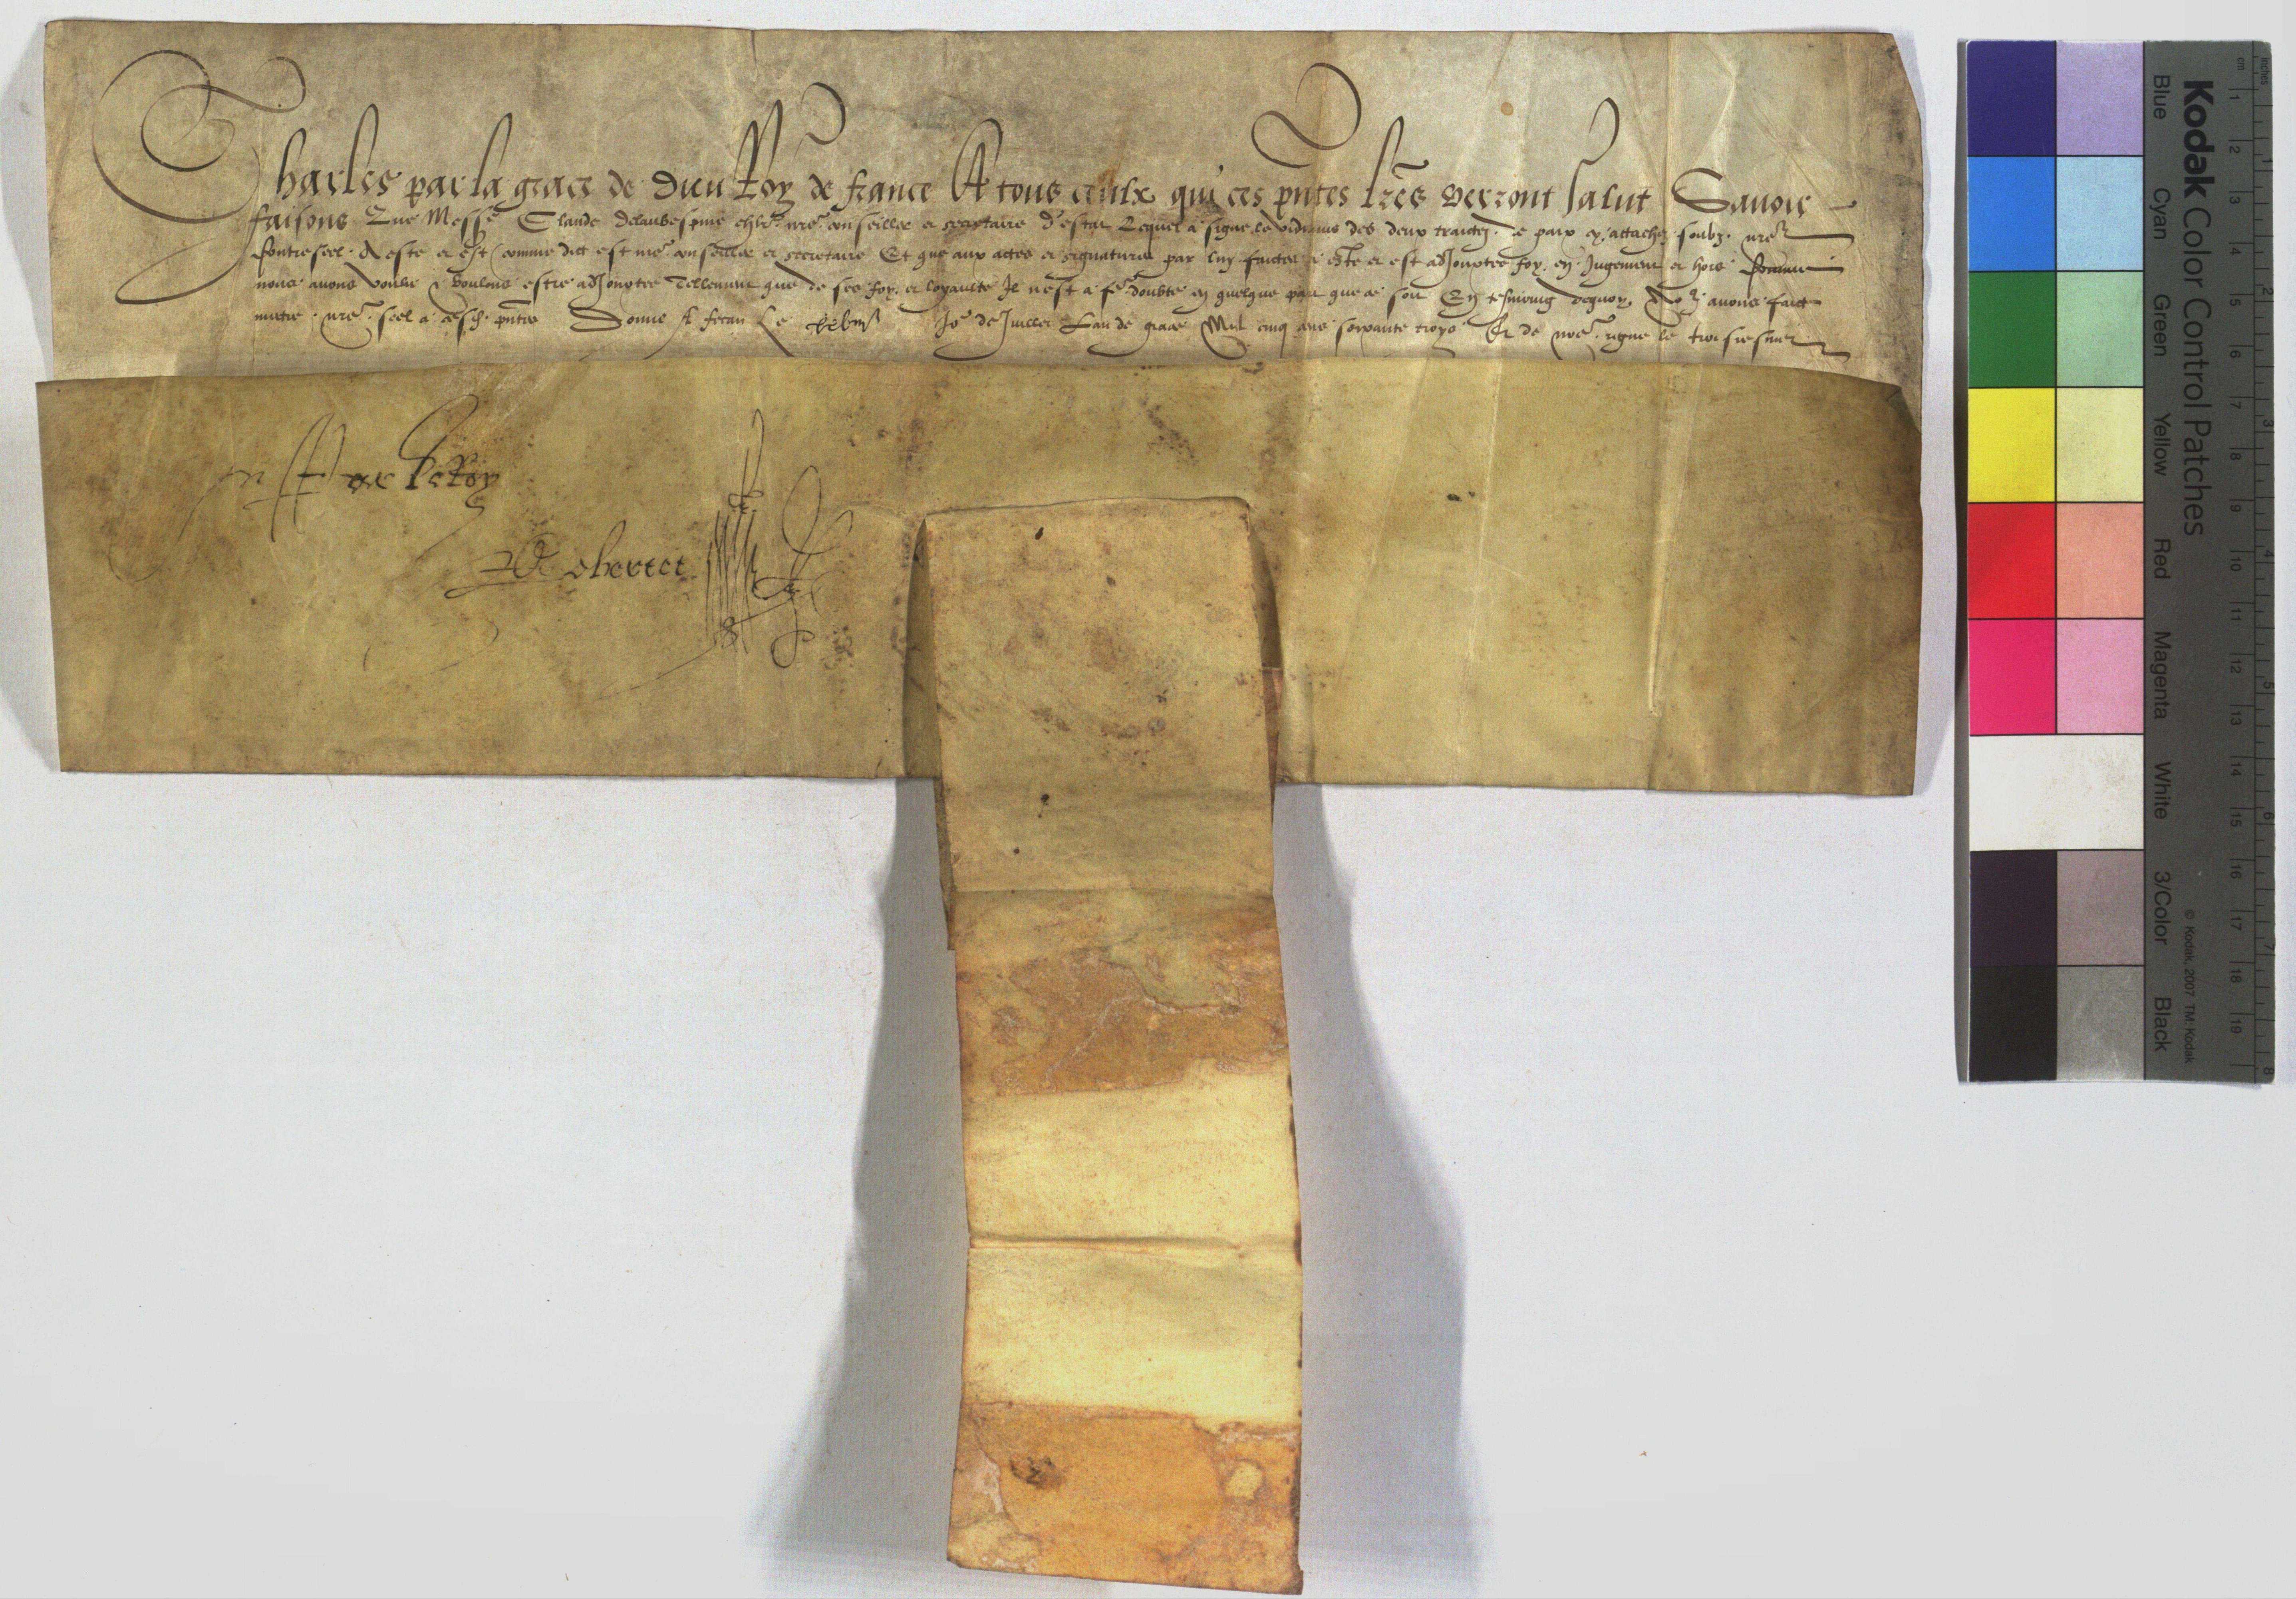 Charles par la grace de Dieu Roy de france A tous ceulx qui ces pntes lres verront salut Sauoir
faisons Que Messe Claude Delaubespine chlr nre conseiller et secretaire d'estat Lequel a signe le vidimus des deux traictez de paix cy attachez soubz nre
Contrescel A este et est comme dict est nre conseiller et secretaire Et que aux actes et signatures par luy faictes a este et est adJouxtee foy en Jugement et hors Comme
nous auons voulu & voulons estre adJouxtee Tellement que de ses foy et loyaulte Il n'est a fe doubte en quelque part que ce soit En tesmoing dequoy Nous auons faict
mettre nre scel a cesd pntes Donne A le Jor de Juillet L'an de grace Mil cinq cens soixante troys Et de nre regne le troisiesme
Par le Roy
De
Kodak Color Control Patches
Blue Cyan Green Yellow Red Magenta White 3/Color Black
© Kodak, 2007 TM: Kodak
inches 1 2 3 4 5 6 7 8
cm 1 2 3 4 5 6 7 8 9 10 11 12 13 14 15 16 17 18 19